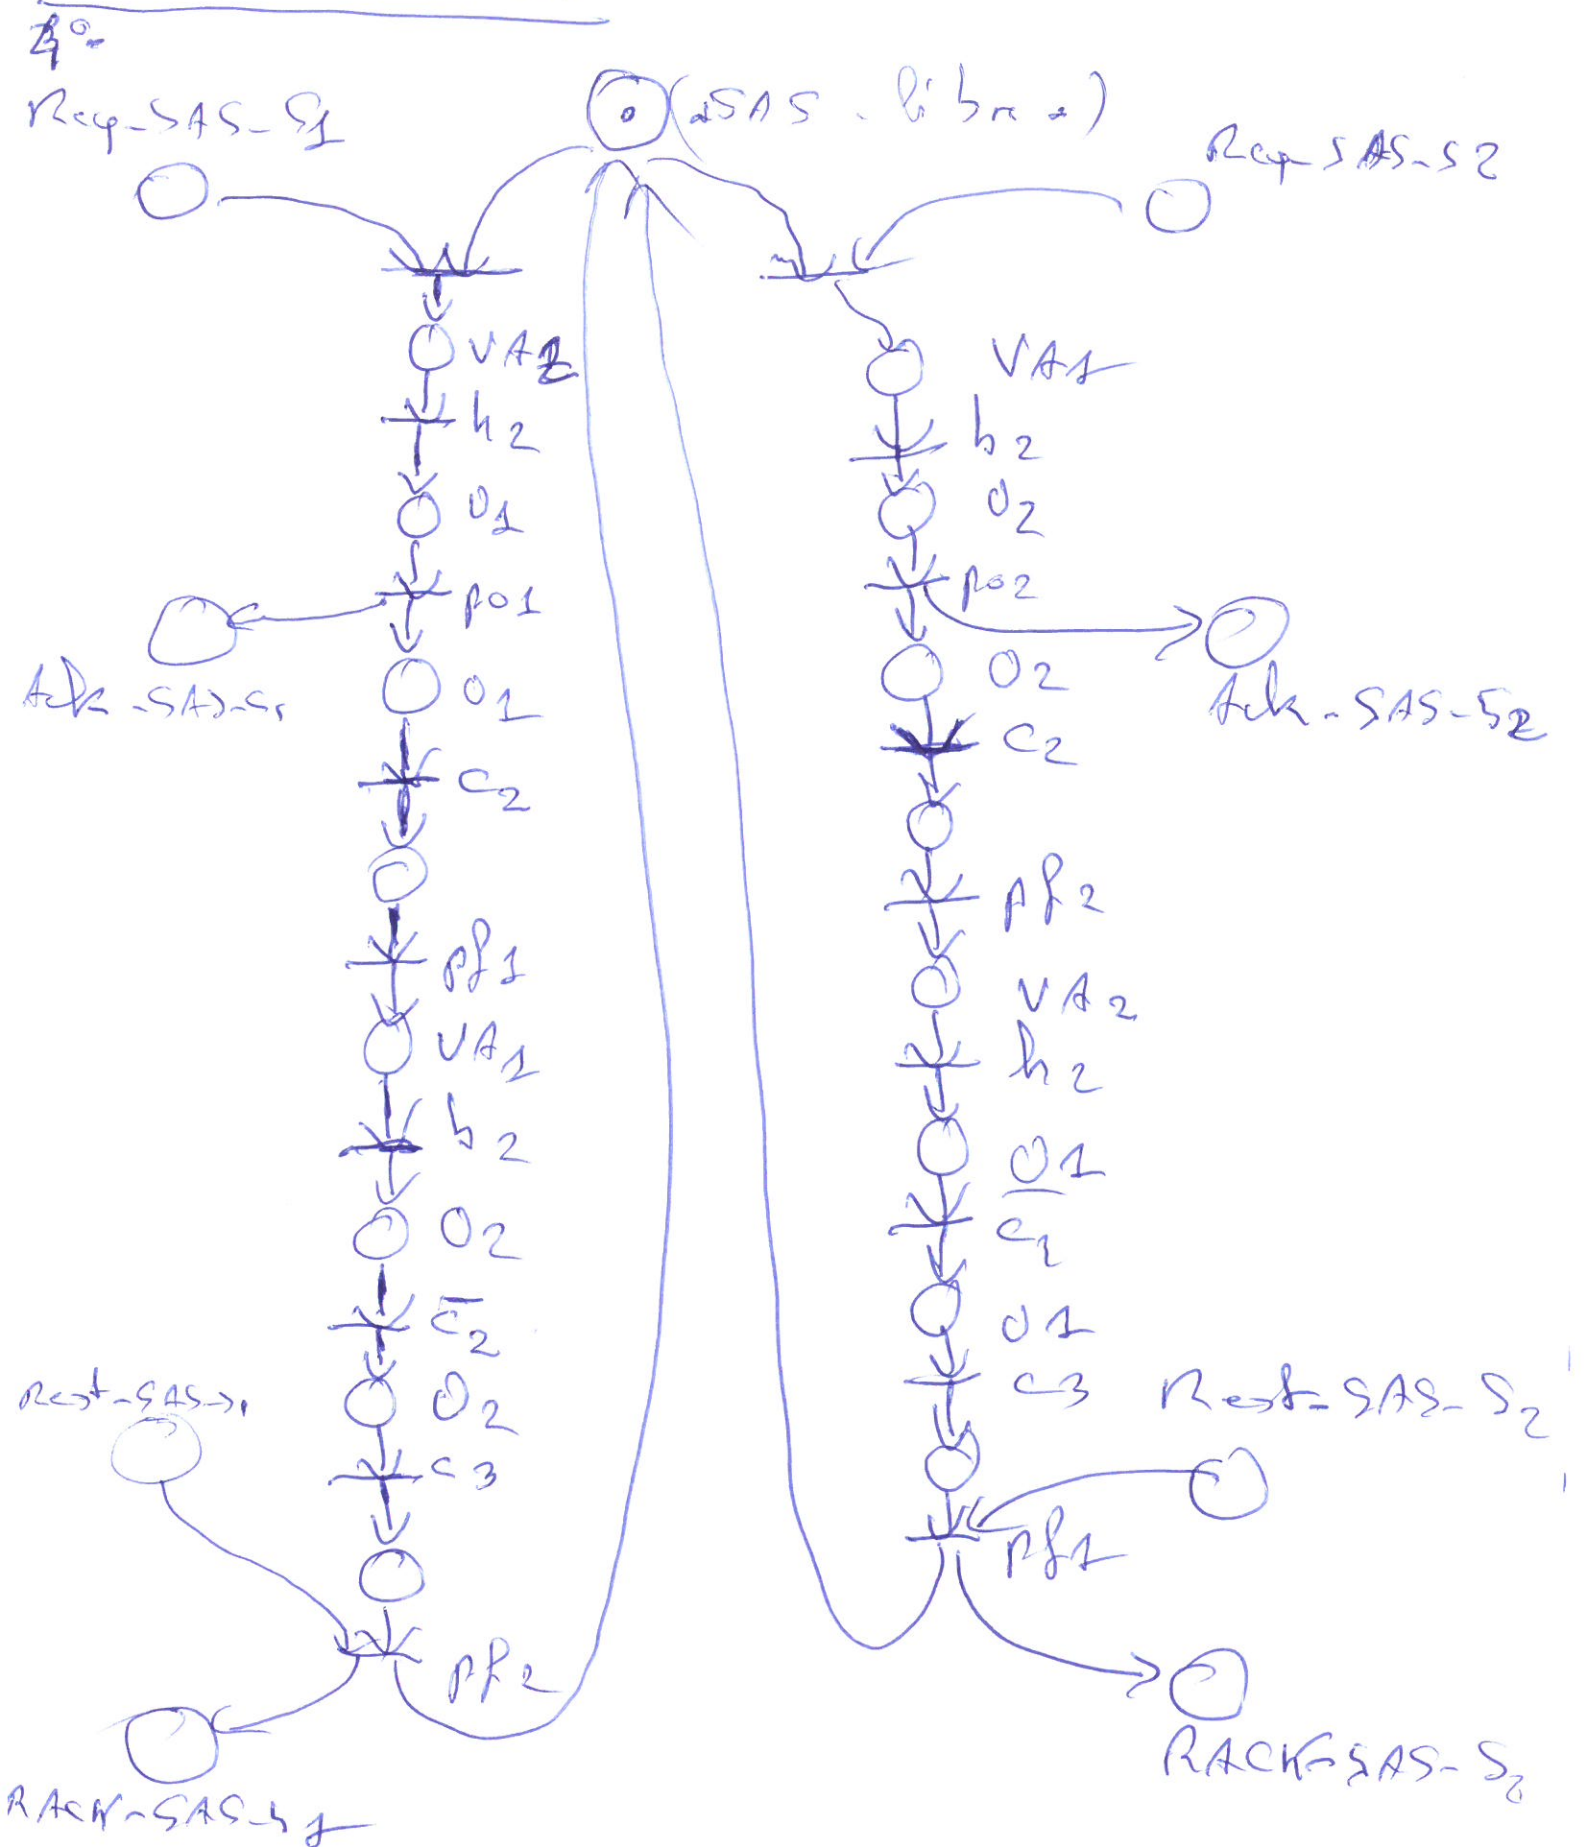 4°-
Req-SAS-S1
(SAS libre)
Req-SAS-S2
VA2
h2
O1
po1
Ack-SAS-S1
O1
c2
pf1
VA1
b2
O2
c̄2
O2
c3
Rest-SAS-S1
pf2
RACK-SAS-S1
VA1
b2
O2
po2
O2
Ack-SAS-S2
c2
pf2
VA2
h2
O1
c̄1
O1
c3
Rest-SAS-S2
pf1
RACK-SAS-S2